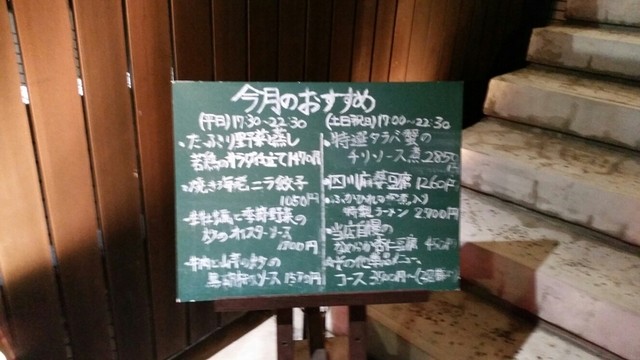 今月のおすすめ
(平日)17:30～22:30
(土日祝日)17:00～22:30
・たっぷり野菜と蒸し
若鶏のサラダ仕立て1470円
・焼き海老ニラ餃子
1050円
・牡蠣と季節野菜の
炒めオイスターソース
円
・牛肉と山芋の炒め
黒胡椒ソース 1570円
・特選タラバ蟹の
チリソース煮 2850円
・四川麻婆豆腐 1260円
・ふかひれの煮入り
特製ラーメン 2700円
・当店自慢の
なめらか杏仁豆腐 450円
☆その他単品メニュー、
コース3800円～